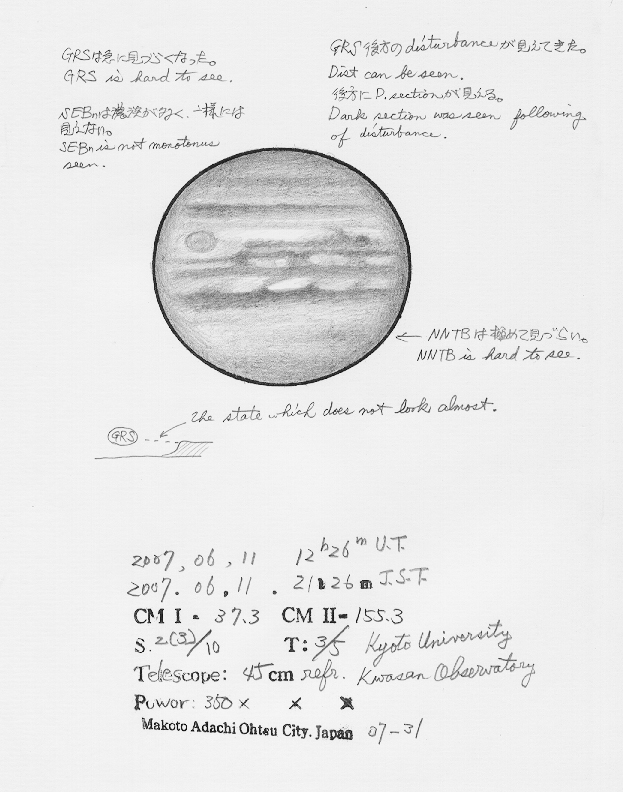 GRSは急に見づらくなった。
GRS is hard to see.
SEBnは濃淡が多く、一様には
見えない。
SEBn is not monotonus
seen.
GRS後方のdisturbanceが見えてきた。
Dist can be seen.
後方にD.sectionが見える。
Dark section was seen following
of disturbance.
NNTBは極めて見づらい。
NNTB is hard to see.
the state which does not look almost.
GRS
2007, 06, 11 12h26m U.T.
2007. 06. 11. 21h26m J.S.T.
CM I - 37.3 CM II- 155.3
S. 2(3)/10 T: 3/5 Kyoto University
Telescope: 45cm refr. Kwasan Observatory
Powor: 350× × ×
Makoto Adachi Ohtsu City. Japan 07-31